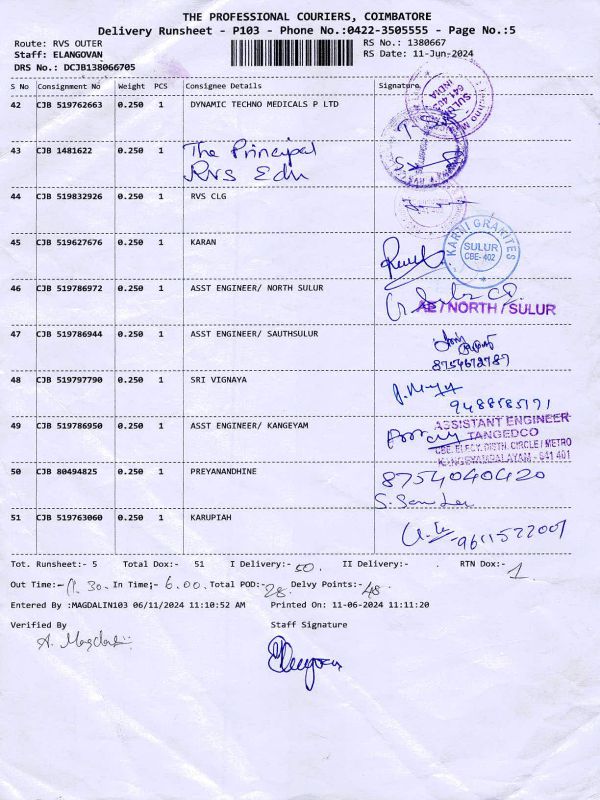 THE PROFESSIONAL COURIERS, COIMBATORE
Delivery Runsheet - P103 - Phone No.:0422-3505555 - Page No.:5
Route: RVS OUTER RS No.: 1380667
Staff: ELANGOVAN RS Date: 11-Jun-2024
DRS No.: DCJB138066705
S No Consignment No Weight PCS Consignee Details Signature
42 CJB 519762663 0.250 1 DYNAMIC TECHNO MEDICALS P LTD
SULUR
641 402
INDIA
43 CJB 1481622 0.250 1 The Principal
RVS Edu
44 CJB 519832926 0.250 1 RVS CLG
45 CJB 519627676 0.250 1 KARAN
KARNI GRANITES
SULUR
CBE-402
46 CJB 519786972 0.250 1 ASST ENGINEER/ NORTH SULUR
AE / NORTH / SULUR
47 CJB 519786944 0.250 1 ASST ENGINEER/ SAUTHSULUR
8754672787
48 CJB 519797790 0.250 1 SRI VIGNAYA
9488585171
49 CJB 519786950 0.250 1 ASST ENGINEER/ KANGEYAM
ASSISTANT ENGINEER
TANGEDCO
CBE. ELECY. DISTN. CIRCLE / METRO
KANGEYAMPALAYAM - 641 401
50 CJB 80494825 0.250 1 PREYANANDHINE
8754040420
51 CJB 519763060 0.250 1 KARUPIAH
9611522007
Tot. Runsheet:- 5 Total Dox:- 51 I Delivery:- 50. II Delivery:- . RTN Dox:- 1
Out Time:- 11.30. In Time:- 6.00. Total POD:- 28. Delvy Points:- 48.
Entered By :MAGDALIN103 06/11/2024 11:10:52 AM Printed On: 11-06-2024 11:11:20
Verified By Staff Signature